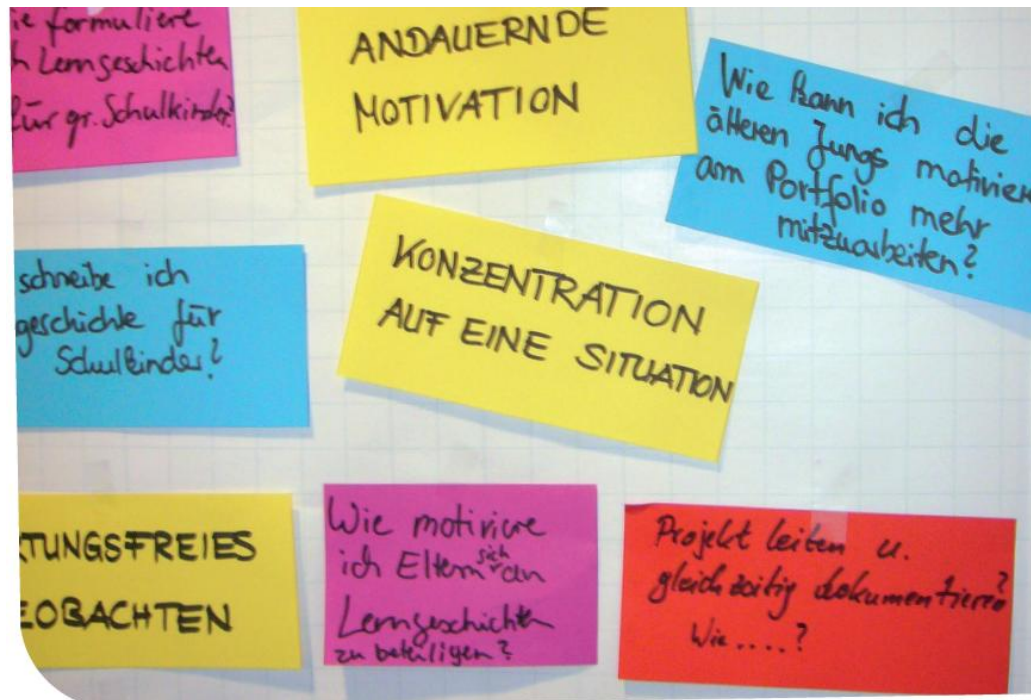 ie formuliere
h Lerngeschichten
für gr. Schulkinder?
ANDAUERNDE
MOTIVATION
Wie kann ich die
älteren Jungs motivieren
am Portfolio mehr
mitzuarbeiten?
schreibe ich
geschichte für
Schulkinder?
KONZENTRATION
AUF EINE SITUATION
RTUNGSFREIES
EOBACHTEN
Wie motiviere
ich Eltern sich an
Lerngeschichten
zu beteiligen?
Projekt leiten u.
gleichzeitig dokumentieren?
Wie....?